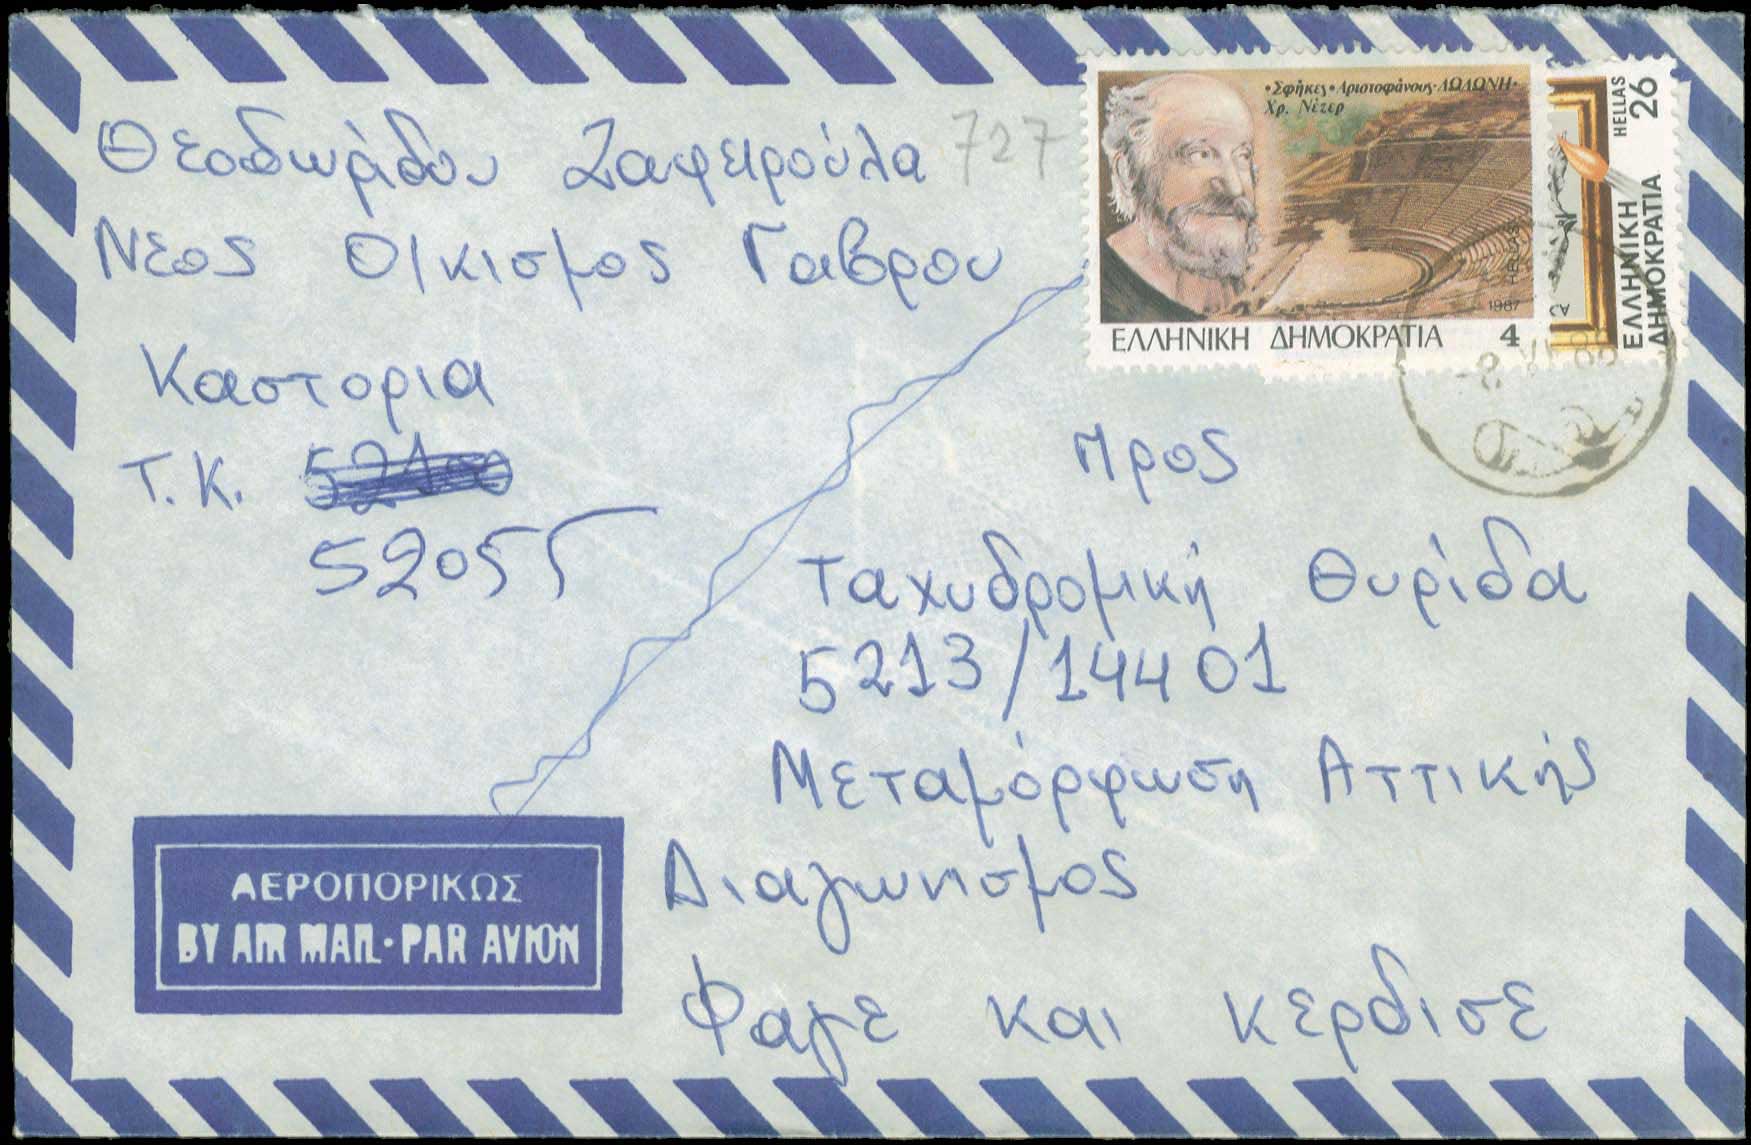 Θεοδωρίδου Ζαφειρούλα 727
Νεος Οικισμος Γαβρου
Καστορια
Τ.Κ. 52100
52055
•Σφήκες• Αριστοφάνους-ΔΩΔΩΝΗ•
Χρ. Νέζερ
HELLAS
1987
ΕΛΛΗΝΙΚΗ ΔΗΜΟΚΡΑΤΙΑ 4
HELLAS 26
ΕΛΛΗΝΙΚΗ
ΔΗΜΟΚΡΑΤΙΑ
προς
Ταχυδρομική Θυρίδα
5213/14401
Μεταμόρφωση Αττικής
Διαγωνισμος
Φαγε και κερδισε
ΑΕΡΟΠΟΡΙΚΩΣ
BY AIR MAIL·PAR AVION